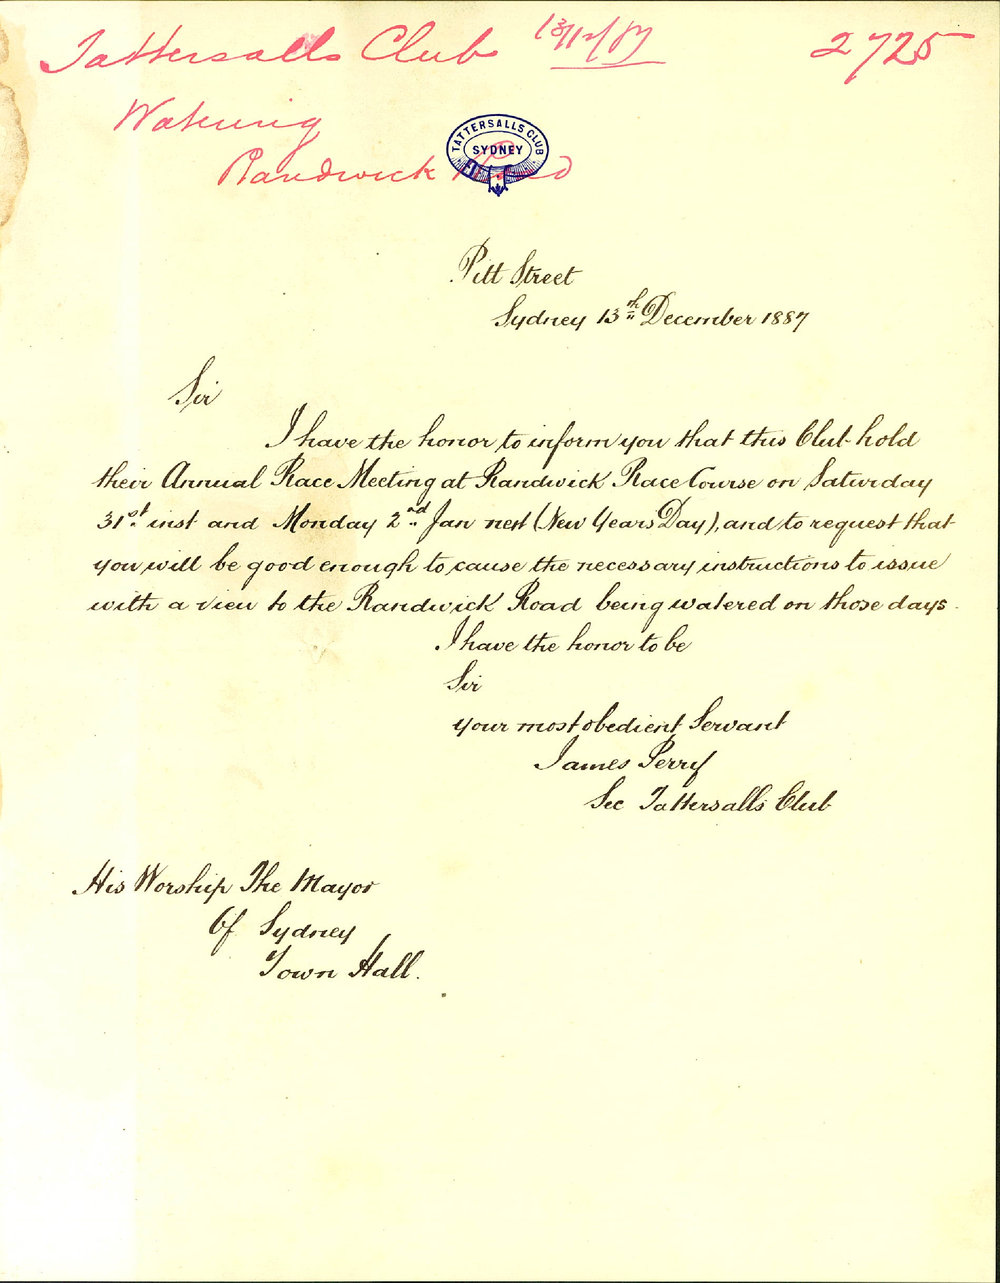 Tattersalls Club 13/12/87 2725
Watering
Randwick Road
TATTERSALLS CLUB
SYDNEY
Pitt Street
Sydney 13th December 1887
Sir
I have the honor to inform you that this Club hold
their Annual Race Meeting at Randwick Race Course on Saturday
31st inst and Monday 2nd Jan next (New Years Day), and to request that
you will be good enough to cause the necessary instructions to issue
with a view to the Randwick Road being watered on those days.
I have the honor to be
Sir
your most obedient Servant
James Perry
Sec Tattersalls Club
His Worship The Mayor
Of Sydney
Town Hall.